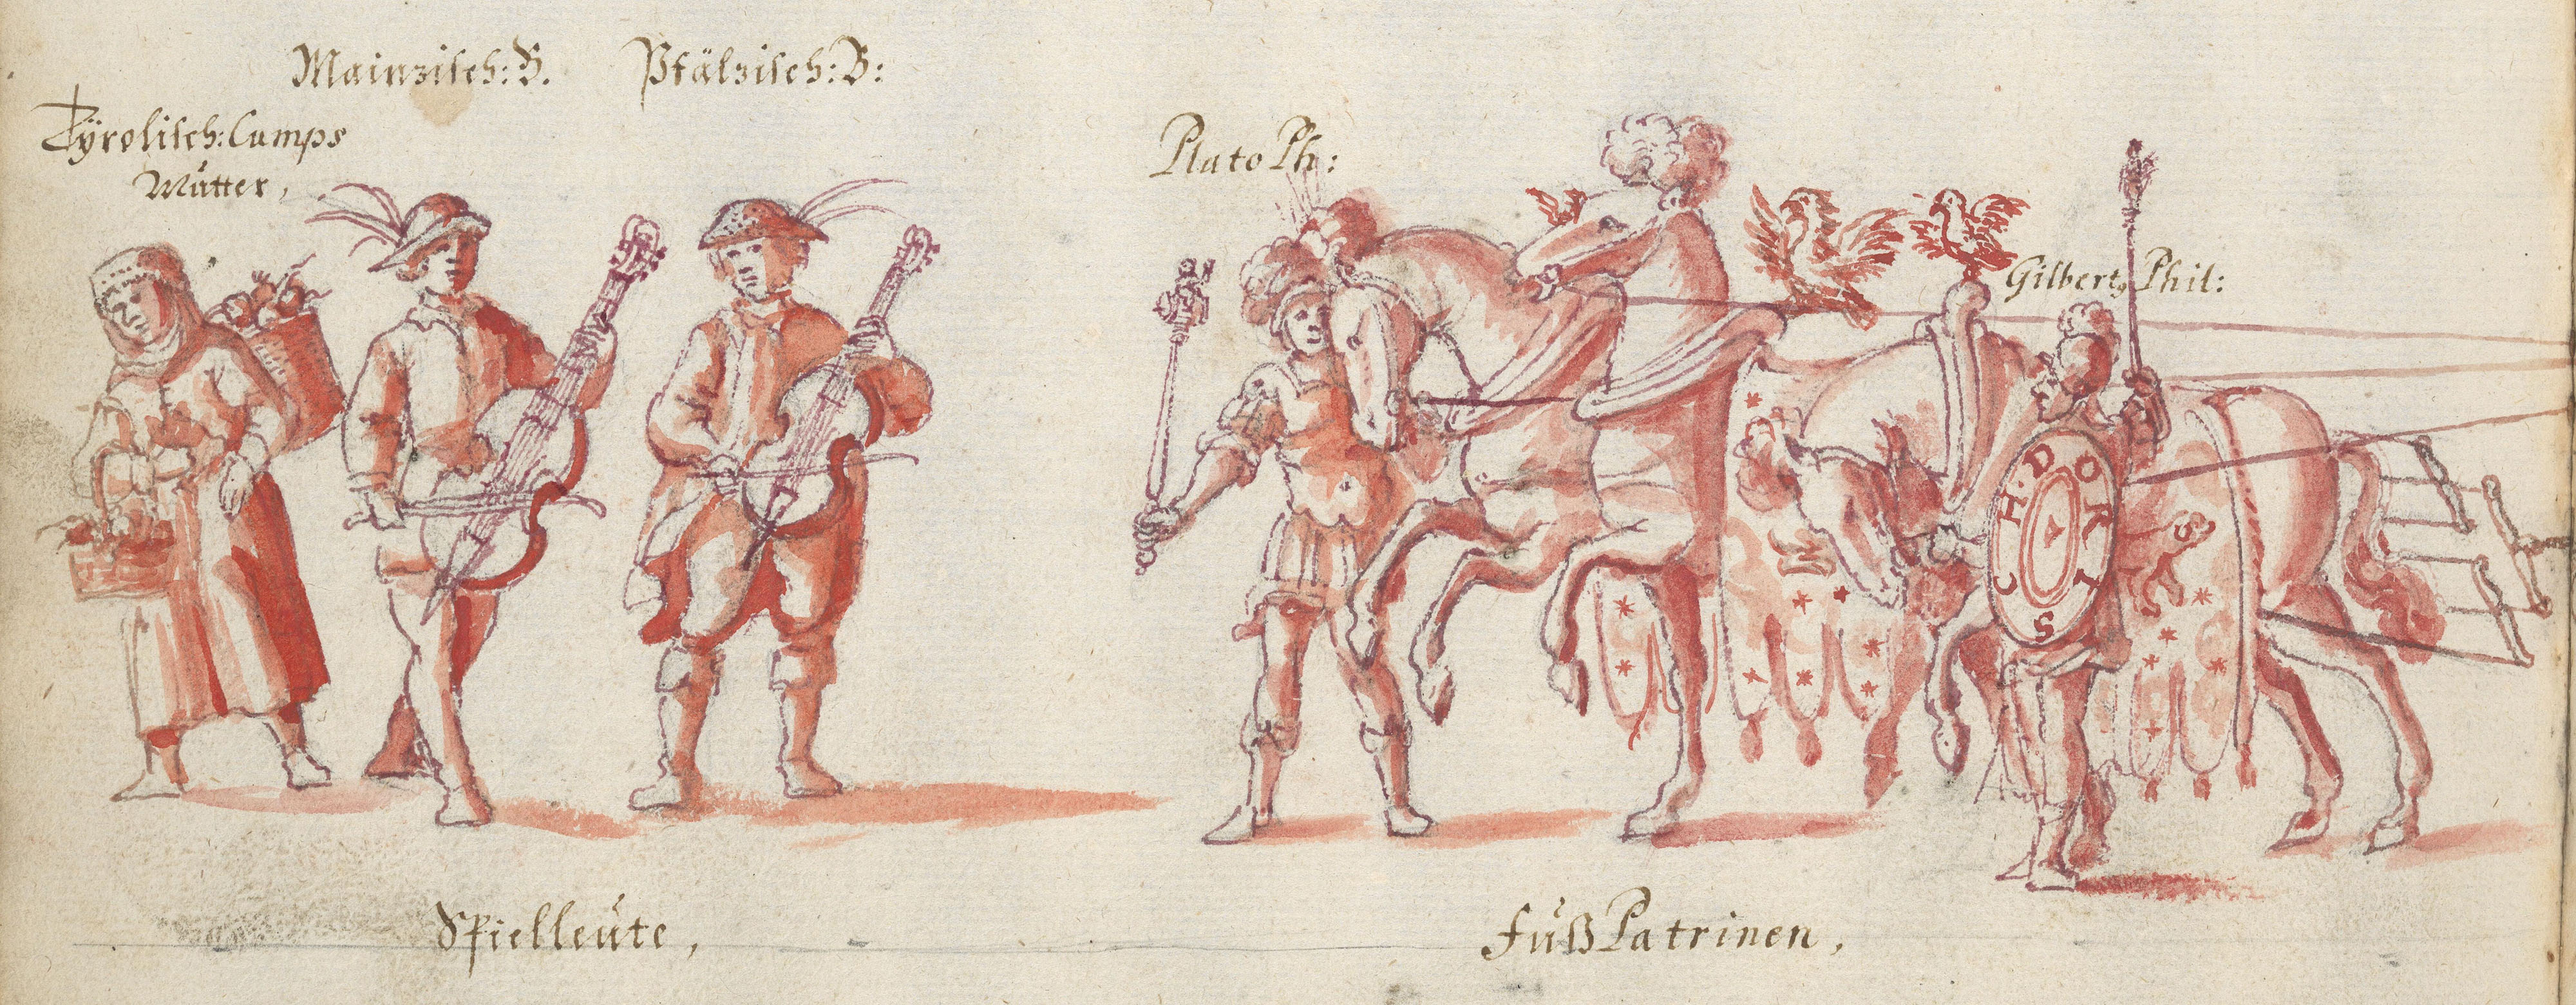 Mainzisch: B.
Pfälzisch: B:
Tÿrolisch: Camps
Mütter,
Plato Ph:
Gilbert9 Phil:
C H. D O R I S
Spielleüte,
Fuß Patrinen,